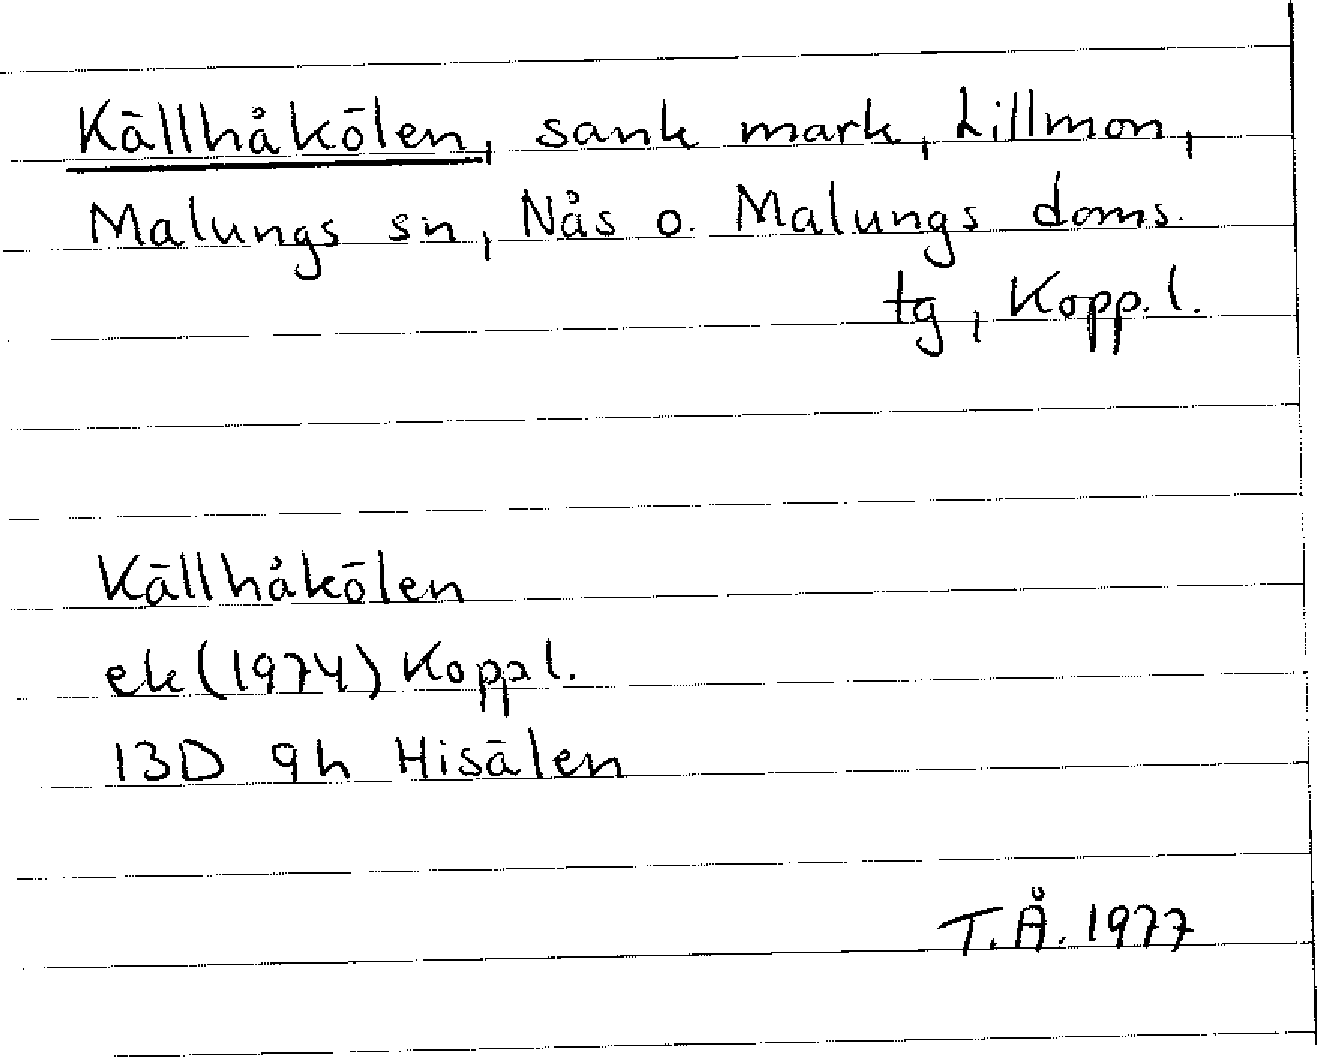 Källhåkölen, sank mark, Lillmon,
Malungs sn, Nås o. Malungs doms.
tg, Kopp.l.
Källhåkölen
ek (1974) Koppl.
13D 9h Hisälen
T.Å. 1977